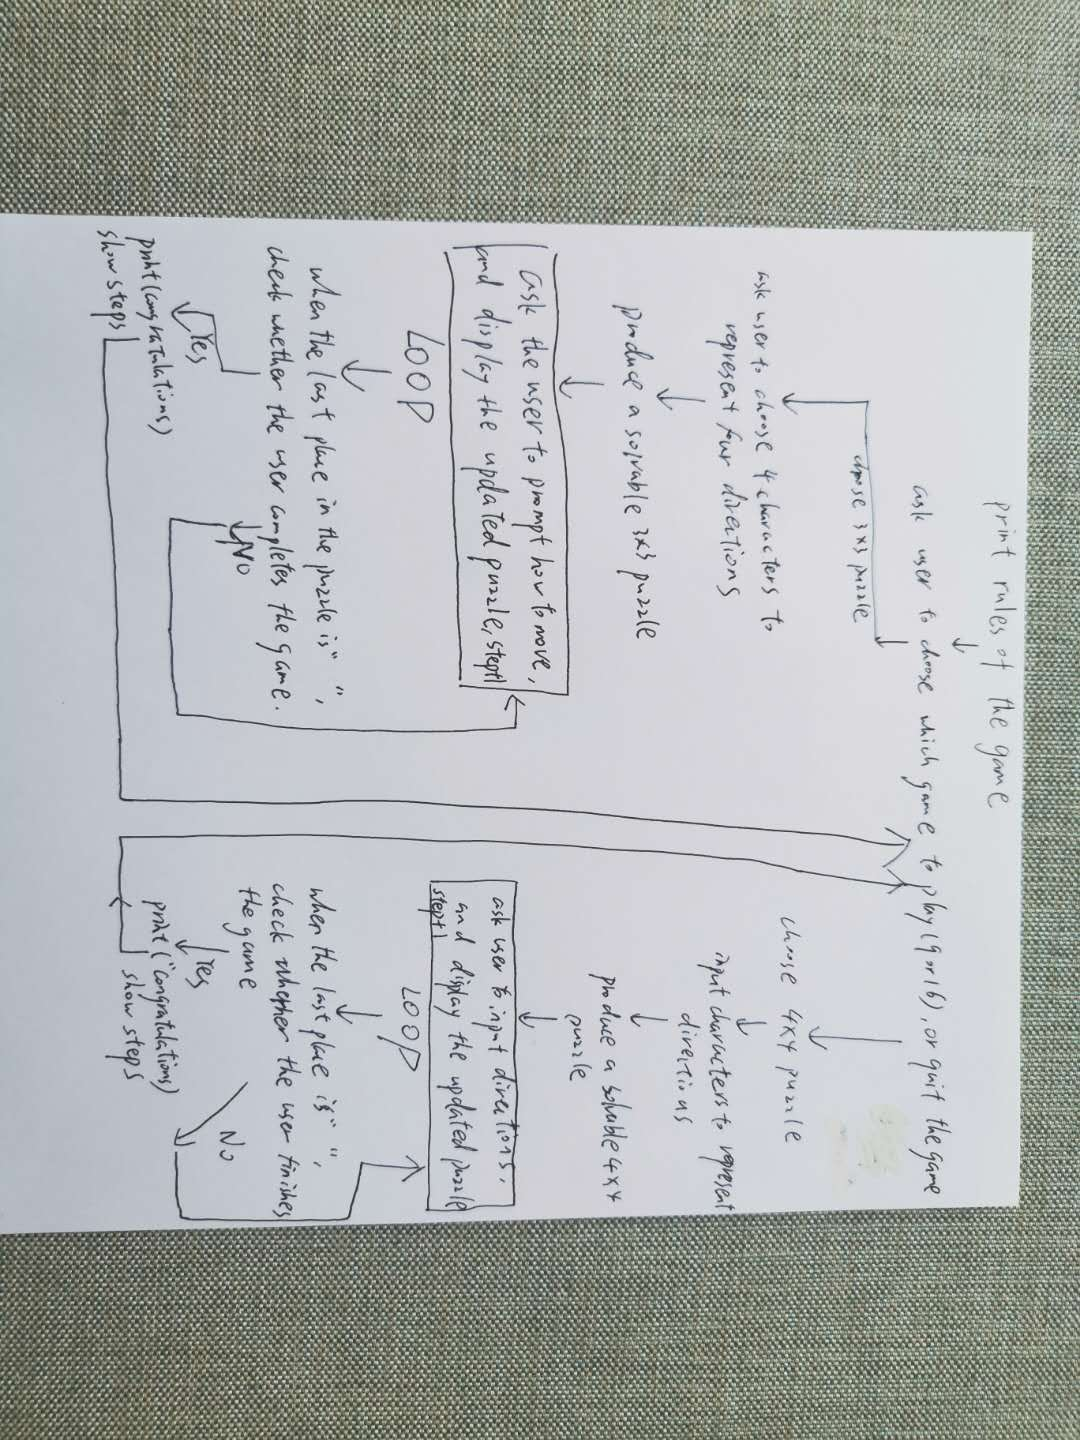 print rules of the game
ask user to choose which game to play (9 or 16), or quit the game
choose 3x3 puzzle
ask user to choose 4 characters to
represent four directions
produce a solvable 3x3 puzzle
ask the user to prompt how to move,
and display the updated puzzle, step+1
LOOP
when the last place in the puzzle is " ",
check whether the user completes the game.
Yes
No
print(congratulations)
show steps
choose 4x4 puzzle
input characters to represent
directions
produce a solvable 4x4
puzzle
ask user to input directions,
and display the updated puzzle
step+1
LOOP
when the last place is " ",
check whether the user finishes
the game
Yes
No
print("congratulations)
show steps